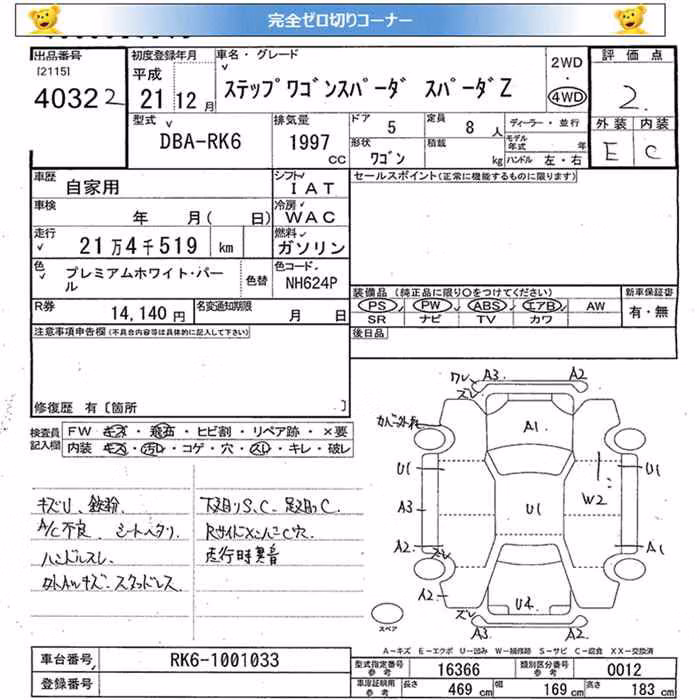 完全ゼロ切りコーナー
出品番号
[2115]
40322
初度登録年月
平成
21年12月
車名・グレード
ステップワゴンスパーダ スパーダZ
2WD
・
4WD
評価点
2.
外装 内装
E C
型式
DBA-RK6
排気量
1997
CC
ドア 5
定員 8 人
ディーラー・並行
形状
ワゴン
積載 kg
モデル年式 年
ハンドル 左・右
車歴 自家用
シフト
IAT
車検 年 月( 日)
冷房
WAC
走行
21万4千519 km
燃料
ガソリン
色
プレミアムホワイト・パール
色替
色コード
NH624P
R券 14,140 円
名変通知期限 月 日
セールスポイント(正常に機能するものに限ります)
装備品(純正品に限り○をつけてください)
新車保証書
PS PW ABS エアB AW
SR ナビ TV カワ
有・無
後日品
注意事項申告欄(不具合内容等は具体的に記入して下さい)
修復歴 有[箇所 ]
検査員
記入欄
FW キズ・飛石・ヒビ割・リペア跡・×要
内装 キズ・汚レ・コゲ・穴・スレ・キレ・破レ
キズU、鉄粉
A/C不良 シートヘタリ
ハンドルスレ
外AWキズ スタッドレス
下廻りS、C 足廻りC
RサイドメンバーC穴
走行時異音
ワレ
A3
A2
スレ
A1
U1
U1
W2
U1
A3
A2
スレ
A1
A2
U4
スレ
A3
A2
スペア
A-キズ E-エクボ U-凹み W-補修跡 S-サビ C-腐食 XX-交換済
車台番号 RK6-1001033
登録番号
型式指定番号
参考
16366
類別区分番号
参考
0012
車庫証明用
参考
長さ 469 cm
幅 169 cm
高さ 183 cm